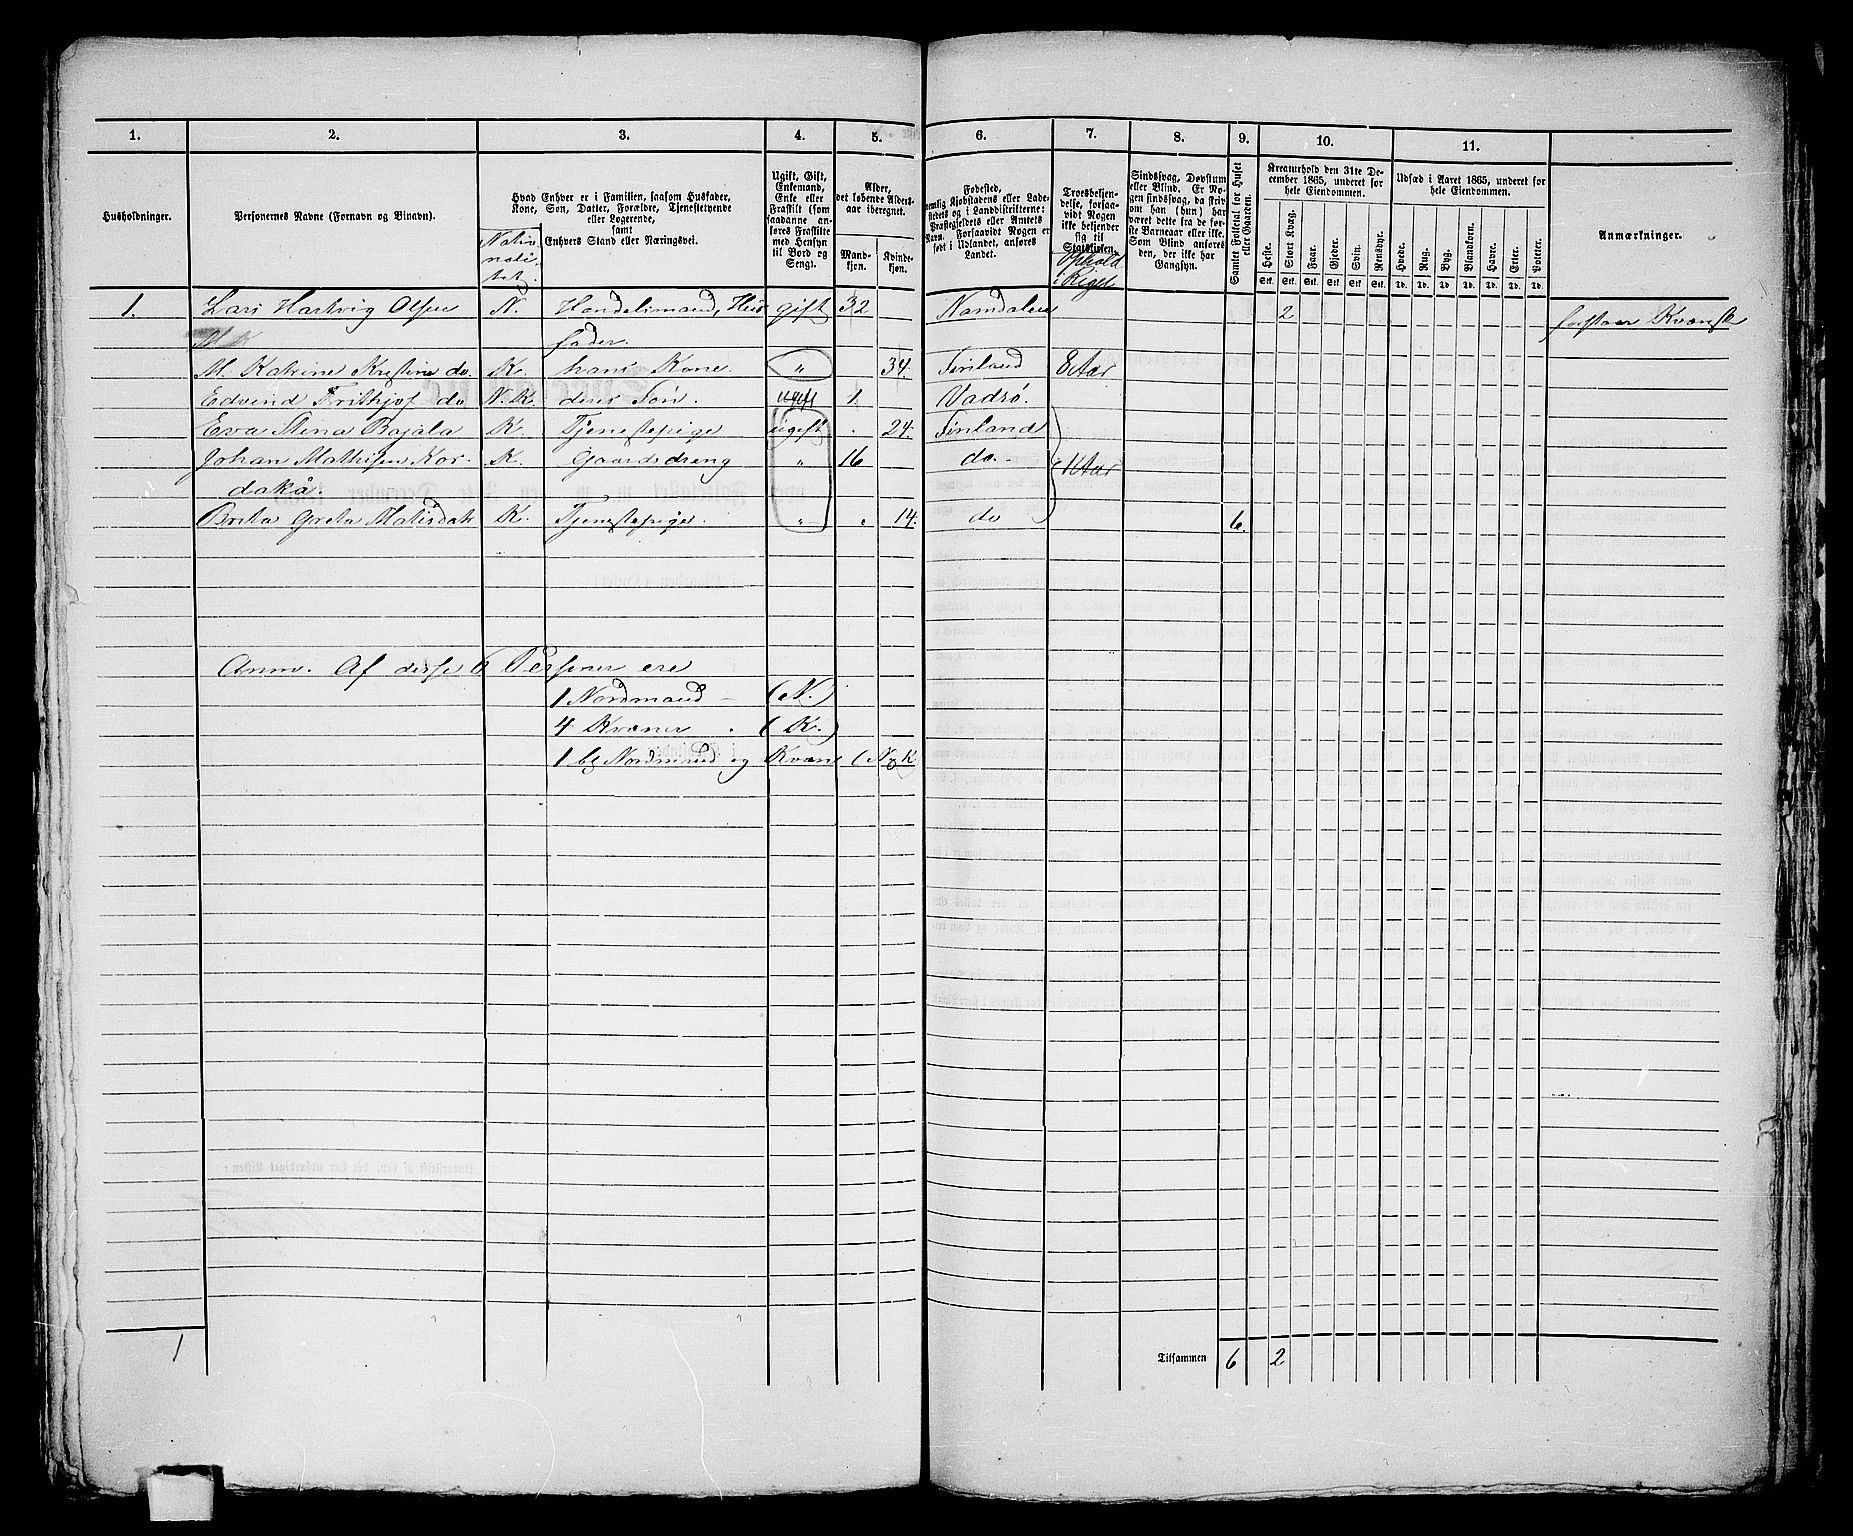 1. 2. 3. 4. 5. 6. 7. 8. 9. 10. 11.
Husholdninger.
Personernes Navne (Fornavn og Binavn).
Hvad Enhver er i Familien, saasom Husfader,
Kone, Søn, Datter, Forældre, Tjenestetyende
eller Logerende,
samt
Enhvers Stand eller Næringsvei.
Natio-
nali-
tet.
Ugift, Gift,
Enkemand,
Enke eller
Fraskilt (som
saadanne an-
føres Fraskilte
med Hensyn
til Bord og
Seng).
Alder,
det løbende Alders-
aar iberegnet.
Mand-
kjøn.
Kvinde-
kjøn.
Fødested,
nemlig Kjøbstadens eller Lade-
stedets og i Landdistrikterne:
Præstegjeldets eller Amtets
Navn. Forsaavidt Nogen er
født i Udlandet, anføres
Landet.
Troesbekjen-
delse, forsaa-
vidt Nogen
ikke bekjender
sig til
Statskirken.
Ophold
i Riget
Sindssvag, Døvstum
eller Blind. Er No-
gen sindssvag, da skriv
om han (hun) har
været dette fra de før-
ste Barneaar eller ikke.
Som Blind anføres
den, der ikke har
Gangsyn.
Samlet Folketal for Huset
eller Gaarden.
Kreaturhold den 31te De-
cember 1865, underet for
hele Eiendommen.
Heste. Stort Kvæg. Faar. Gjeder. Svin. Rensdyr.
Stk. Stk. Stk. Stk. Stk. Stk.
Udsæd i Aaret 1865, underet for
hele Eiendommen.
Hvede. Rug. Byg. Blandkorn. Havre. Erter. Poteter.
Td. Td. Td. Td. Td. Td. Td.
Anmærkninger.
1. Lars Hartvig Olsen N. Handelsmand, Hus- gift 32 Namdalen 2 forstaar Kvænsk
fader.
M. Katrine Kristine do. K. hans Kone. „ 34. Finland 8 Aar
Edvind Frithjof do N.K. deres Søn. ugift 1. Vadsø.
Eva Stina Bajala K. Tjenestepige ugift . 24. Finland
Johan Mathisen Kor- K. Gaardsdreng „ 16 do. 1 Aar
dakå.
Brita Greta Matisdatr K. Tjenestepige. „ . 14. do 6.
Anm. Af disse 6 Personer ere
1 Nordmand – (N.)
4 Kvæner . (K.)
1 bl Nordmand og Kvæn (N.K
1
Tilsammen 6 2